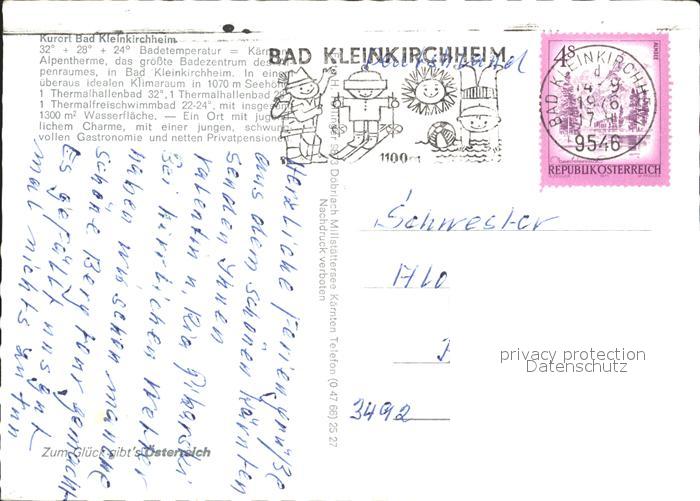 Kurort Bad Kleinkirchheim
32° + 28° + 24° Badetemperatur = Kärn
Alpentherme, das größte Badezentrum des
penraumes, in Bad Kleinkirchheim. In eine
überaus idealen Klimaraum in 1070 m Seehöh
1 Thermalhallenbad 32°, 1 Thermalhallenbad 28
1 Thermalfreischwimmbad 22-24°, mit insgesam
1300 m² Wasserfläche. — Ein Ort mit jug
lichem Charme, mit einer jungen, schwun
vollen Gastronomie und netten Privatpension
BAD KLEINKIRCHHEIM
Deutschland
1100 m
4S
BAD KLEINKIRCHHEIM
9546
REPUBLIK ÖSTERREICH
Herzliche Feriengrüße
aus dem schönen Kärnten
senden Ihnen
Valentin u. Ria
Bei herrlichem Wetter
haben wir schon manche
schöne Bergtour gemacht
Es gefällt uns gut
mal nichts zu tun
Döbriach Millstättersee Kärnten Telefon (0 47 66) 25 27
Nachdruck verboten
Schwester
3492
privacy protection
Datenschutz
Zum Glück gibt's Österreich